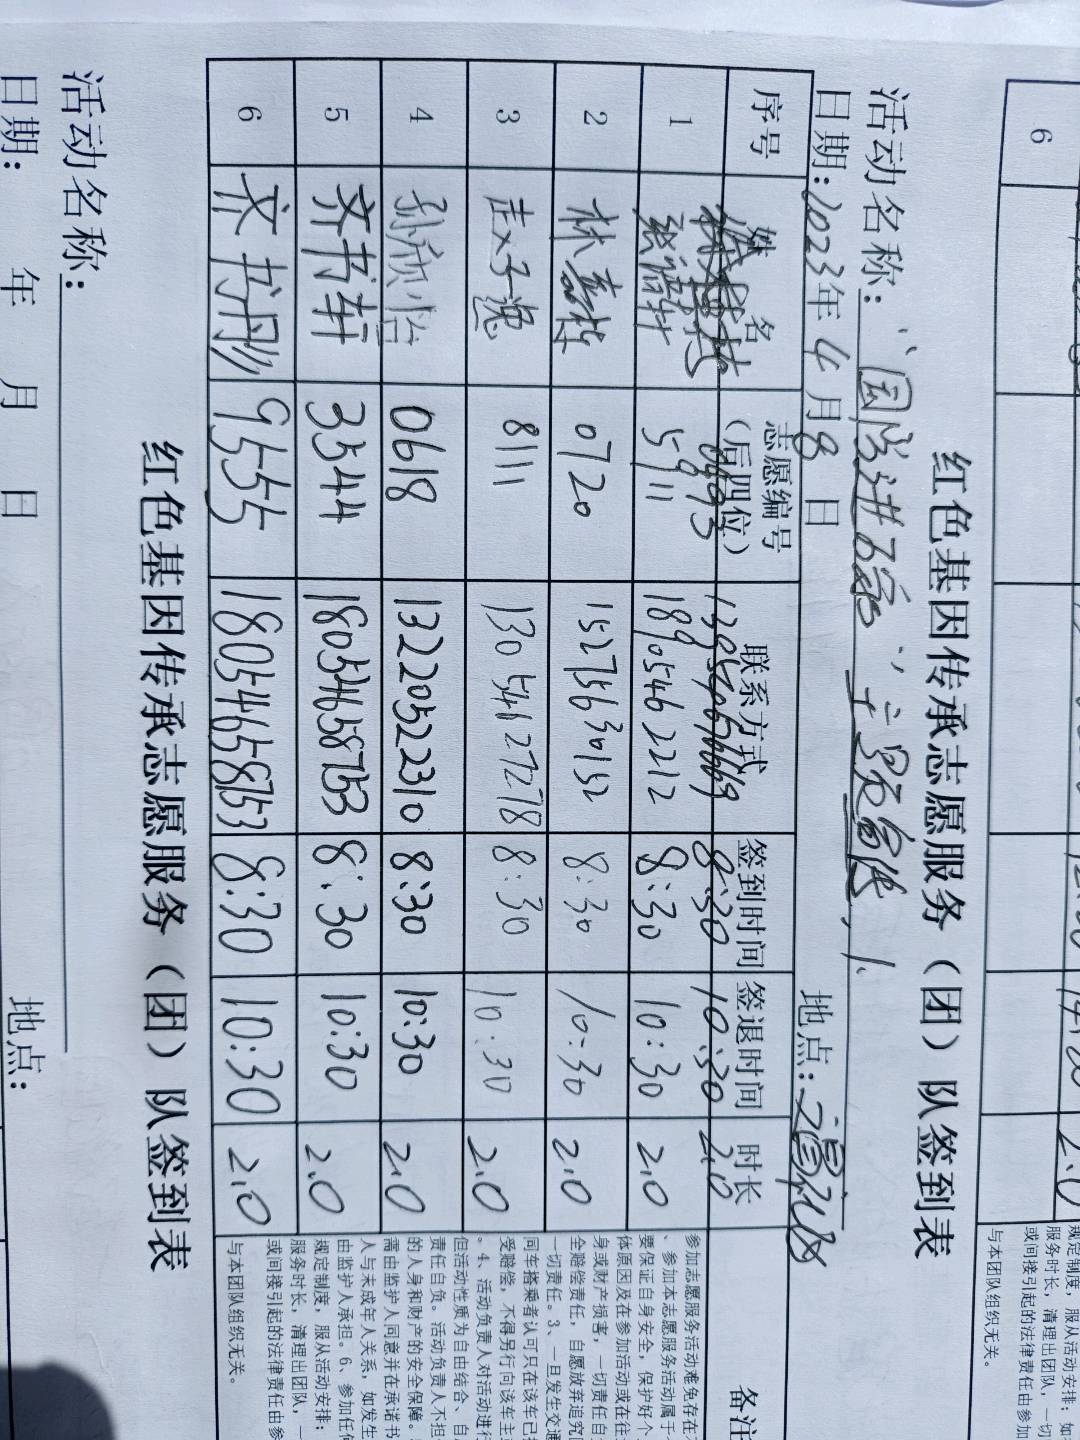 6
12:00
2.0
规定制度，服从活动安排；如
服务时长，清理出团队，一切
或间接引起的法律责任由参加
与本团队组织无关。
红色基因传承志愿服务（团）队签到表
活动名称：
日期：2023年4月8日 地点：
序号 姓名 志愿编号（后四位） 联系方式 签到时间 签退时间 时长 备注
8:30 10:30 2.0
1 5911 18905462212 8:30 10:30 2.0
2 0720 15275630152 8:30 10:30 2.0
3 赵子逸 8111 13054627278 8:30 10:30 2.0
4 孙欣怡 0618 13220522310 8:30 10:30 2.0
5 齐书轩 3544 18054658753 8:30 10:30 2.0
6 齐书彤 9555 18054658753 8:30 10:30 2.0
参加志愿服务活动难免存在
、参加本志愿服务活动属于
要保证自身安全，保护好个
体原因及在参加活动或在往
身或财产损害，一切责任自
全赔偿责任，自愿放弃追究
一切责任。3、一旦发生交通
同车搭乘者认可只在该车已
受赔偿，不得另行向该车主
。4、活动负责人对活动进行
但活动性质为自由结合、自
责任自负。活动负责人不担
的人身和财产的安全保障。
需由监护人同意并在承诺书
人与未成年人关系，如发生
由监护人承担。6、参加任何
规定制度，服从活动安排；
服务时长，清理出团队，一
或间接引起的法律责任由参
与本团队组织无关。
红色基因传承志愿服务（团）队签到表
活动名称：
日期： 年 月 日 地点：